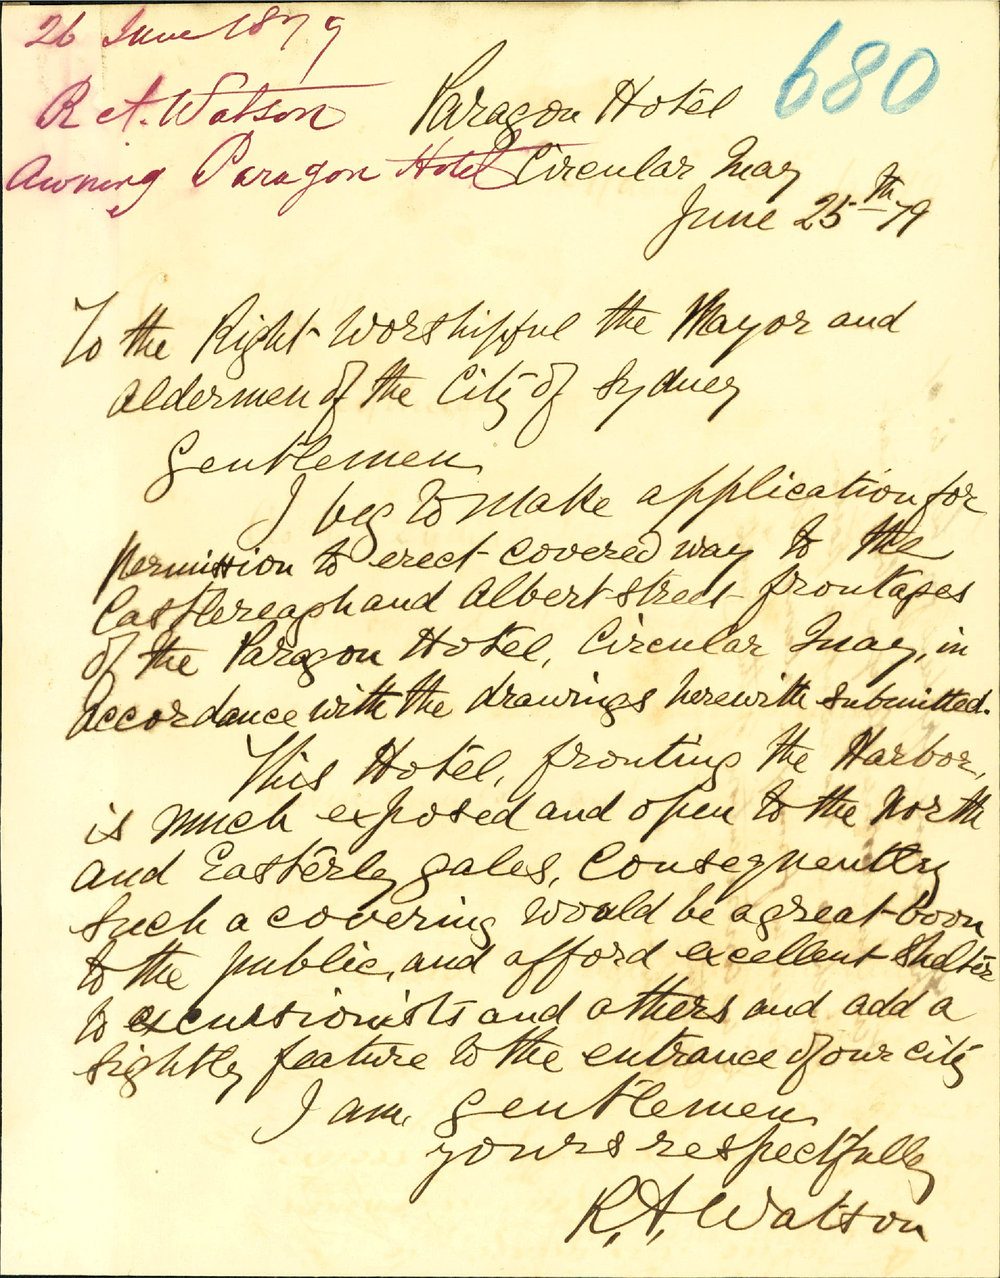 26 June 1879
680
R. A. Watson
Awning Paragon Hotel
Paragon Hotel
Circular Quay
June 25th 79
To the Right Worshipful the Mayor and
Aldermen of the City of Sydney
Gentlemen
I beg to make application for
permission to erect covered way to the
Castlereagh and Albert Street frontages
of the Paragon Hotel, Circular Quay, in
accordance with the drawings herewith submitted.
This Hotel, fronting the Harbor,
is much exposed and open to the North
and Easterly gales, Consequently
such a covering would be a great boon
to the public, and afford excellent Shelter
to excursionists and others and add a
sightly feature to the entrance of our city
I am, Gentlemen
yours respectfully
R. A. Watson